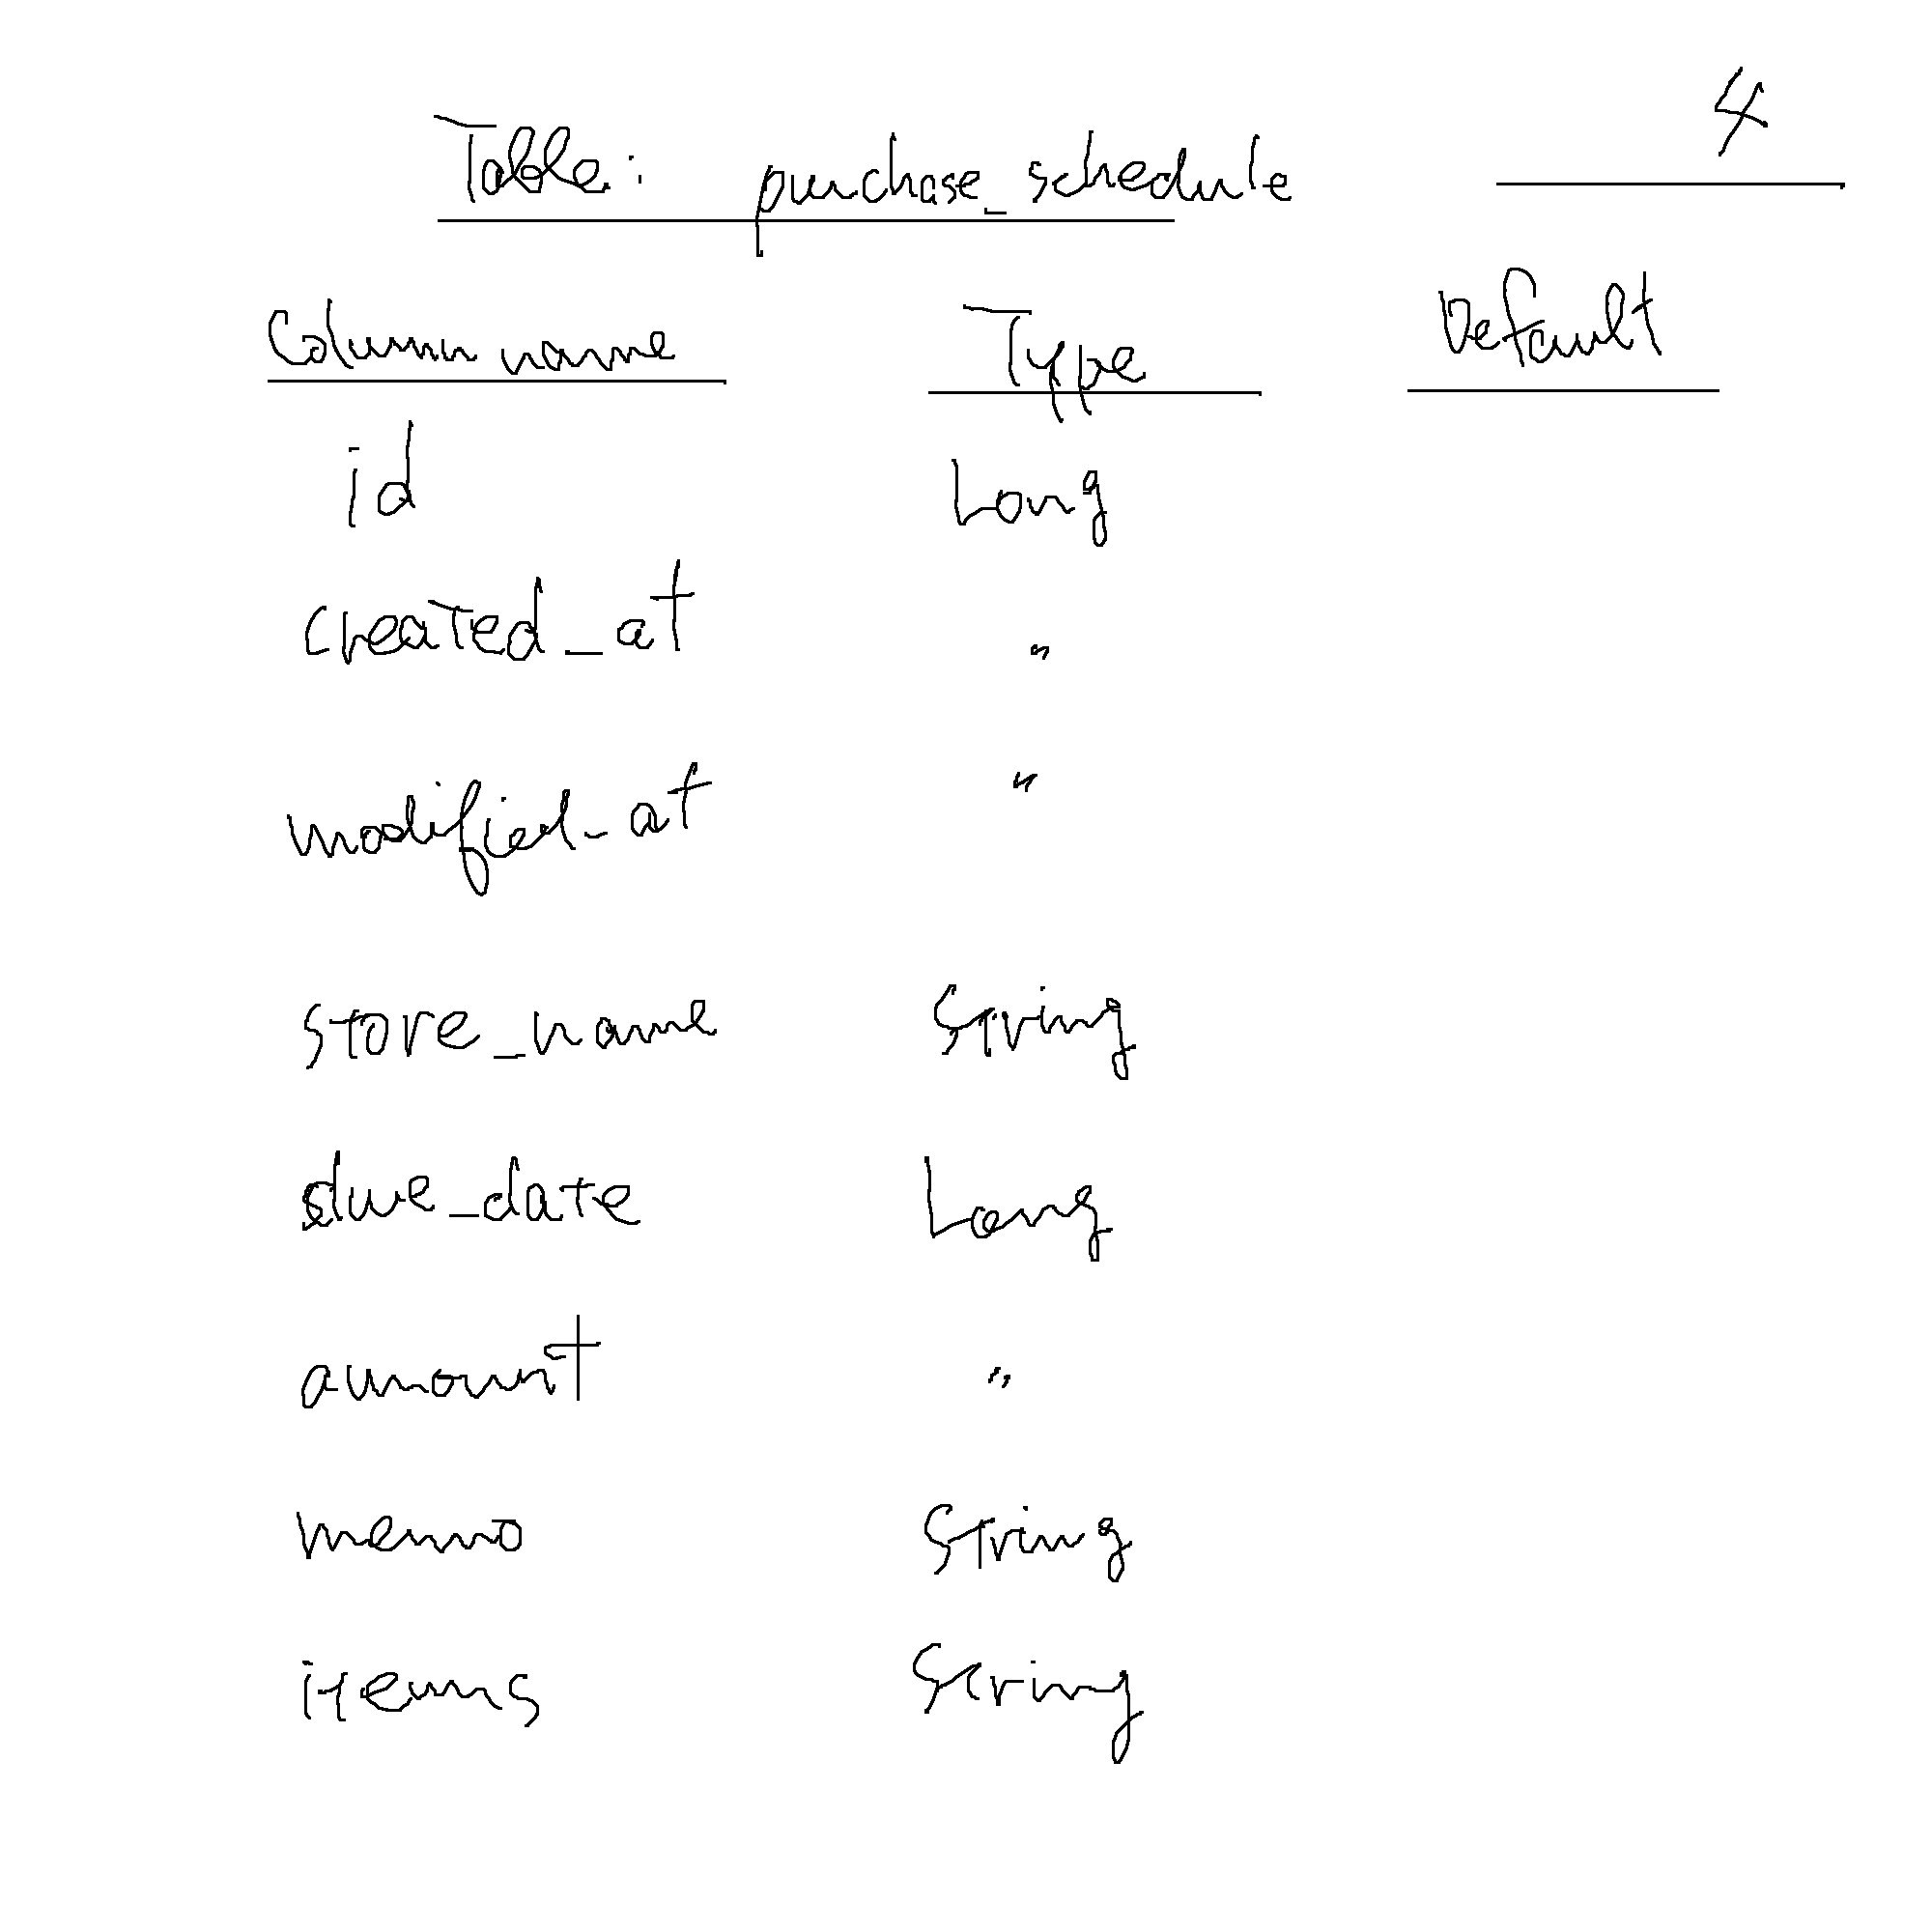 4
Table: purchase_schedule
Column name Type Default
id Long
created_at "
modified_at "
store_name String
due_date Long
amount "
memo String
items String